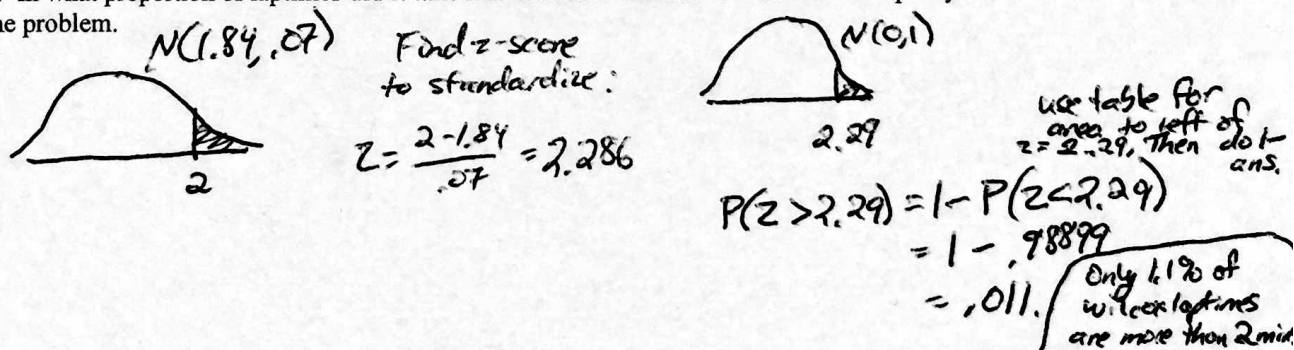 he problem.
N(1.84, .07)
2
Find z-score
to standardize:
z = 2-1.84 / .07 = 2.286
N(0,1)
2.29
use table for
area to left of
z = 2.29, Then do 1-
ans.
P(z > 2.29) = 1 - P(z < 2.29)
= 1 - .98899
= .011.
Only 1.1% of
wilcox laptimes
are more than 2 min.